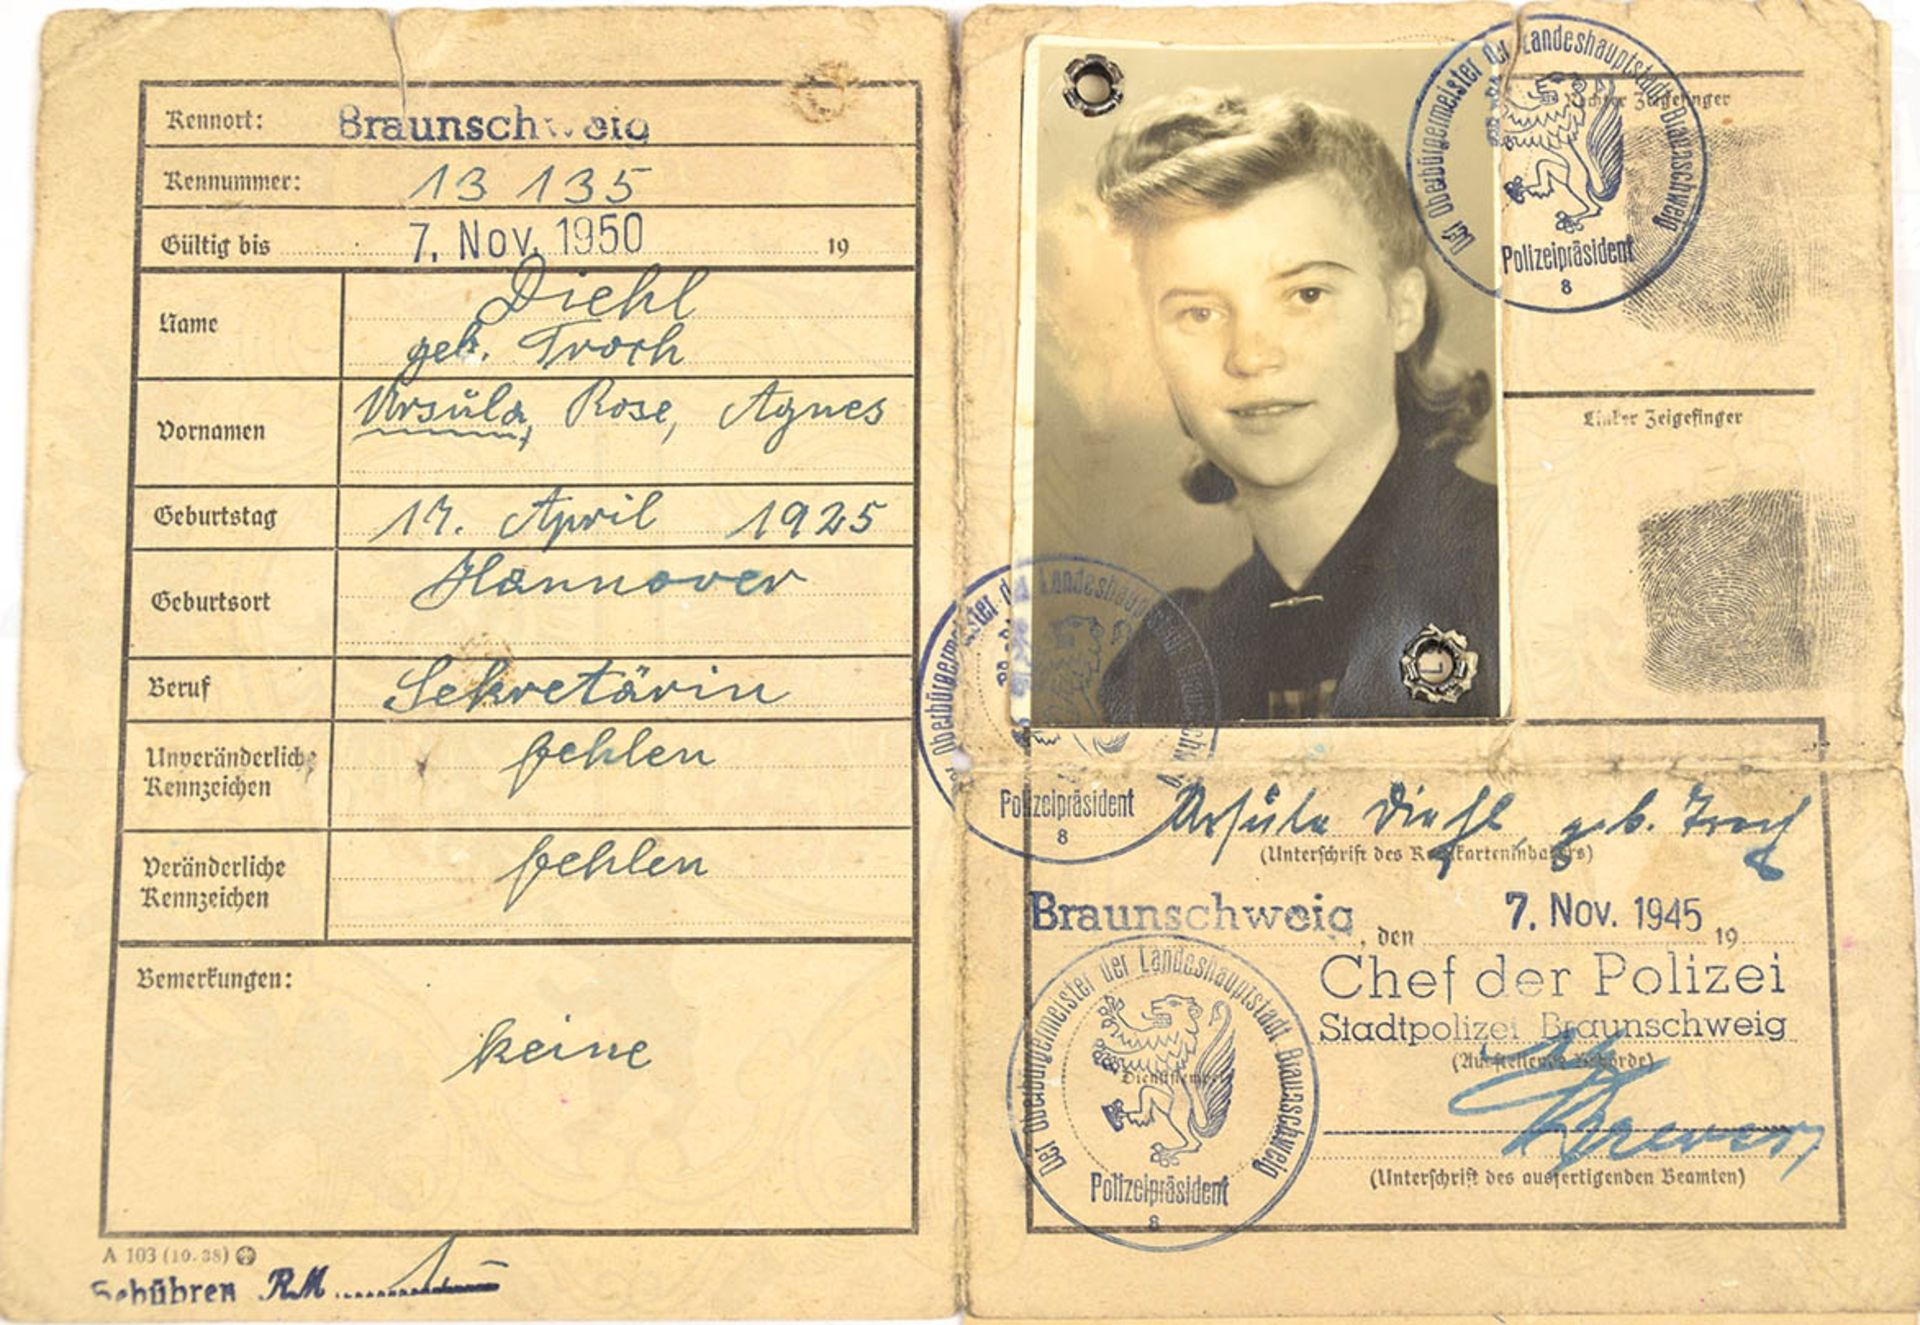 Kennort: Braunschweig
Kennummer: 13 135
Gültig bis 7. Nov. 1950 19
Name Diehl
geb. Troch
Vornamen Ursula, Rose, Agnes
Geburtstag 17. April 1925
Geburtsort Hannover
Beruf Sekretärin
Unveränderliche Kennzeichen fehlen
Veränderliche Kennzeichen fehlen
Bemerkungen:
keine
A 103 (10.38)
Gebühren RM 1
Der Oberbürgermeister der Landeshauptstadt Braunschweig
Polizeipräsident
8
Rechter Zeigefinger
Linker Zeigefinger
Der Oberbürgermeister der Landeshauptstadt Braunschweig
Polizeipräsident
8
Ursula Diehl, geb. Troch
(Unterschrift des Kennkarteninhabers)
Braunschweig, den 7. Nov. 1945 19
Chef der Polizei
Stadtpolizei Braunschweig
(Ausstellende Behörde)
Der Oberbürgermeister der Landeshauptstadt Braunschweig
Dienststempel
Polizeipräsident
8
(Unterschrift des ausfertigenden Beamten)